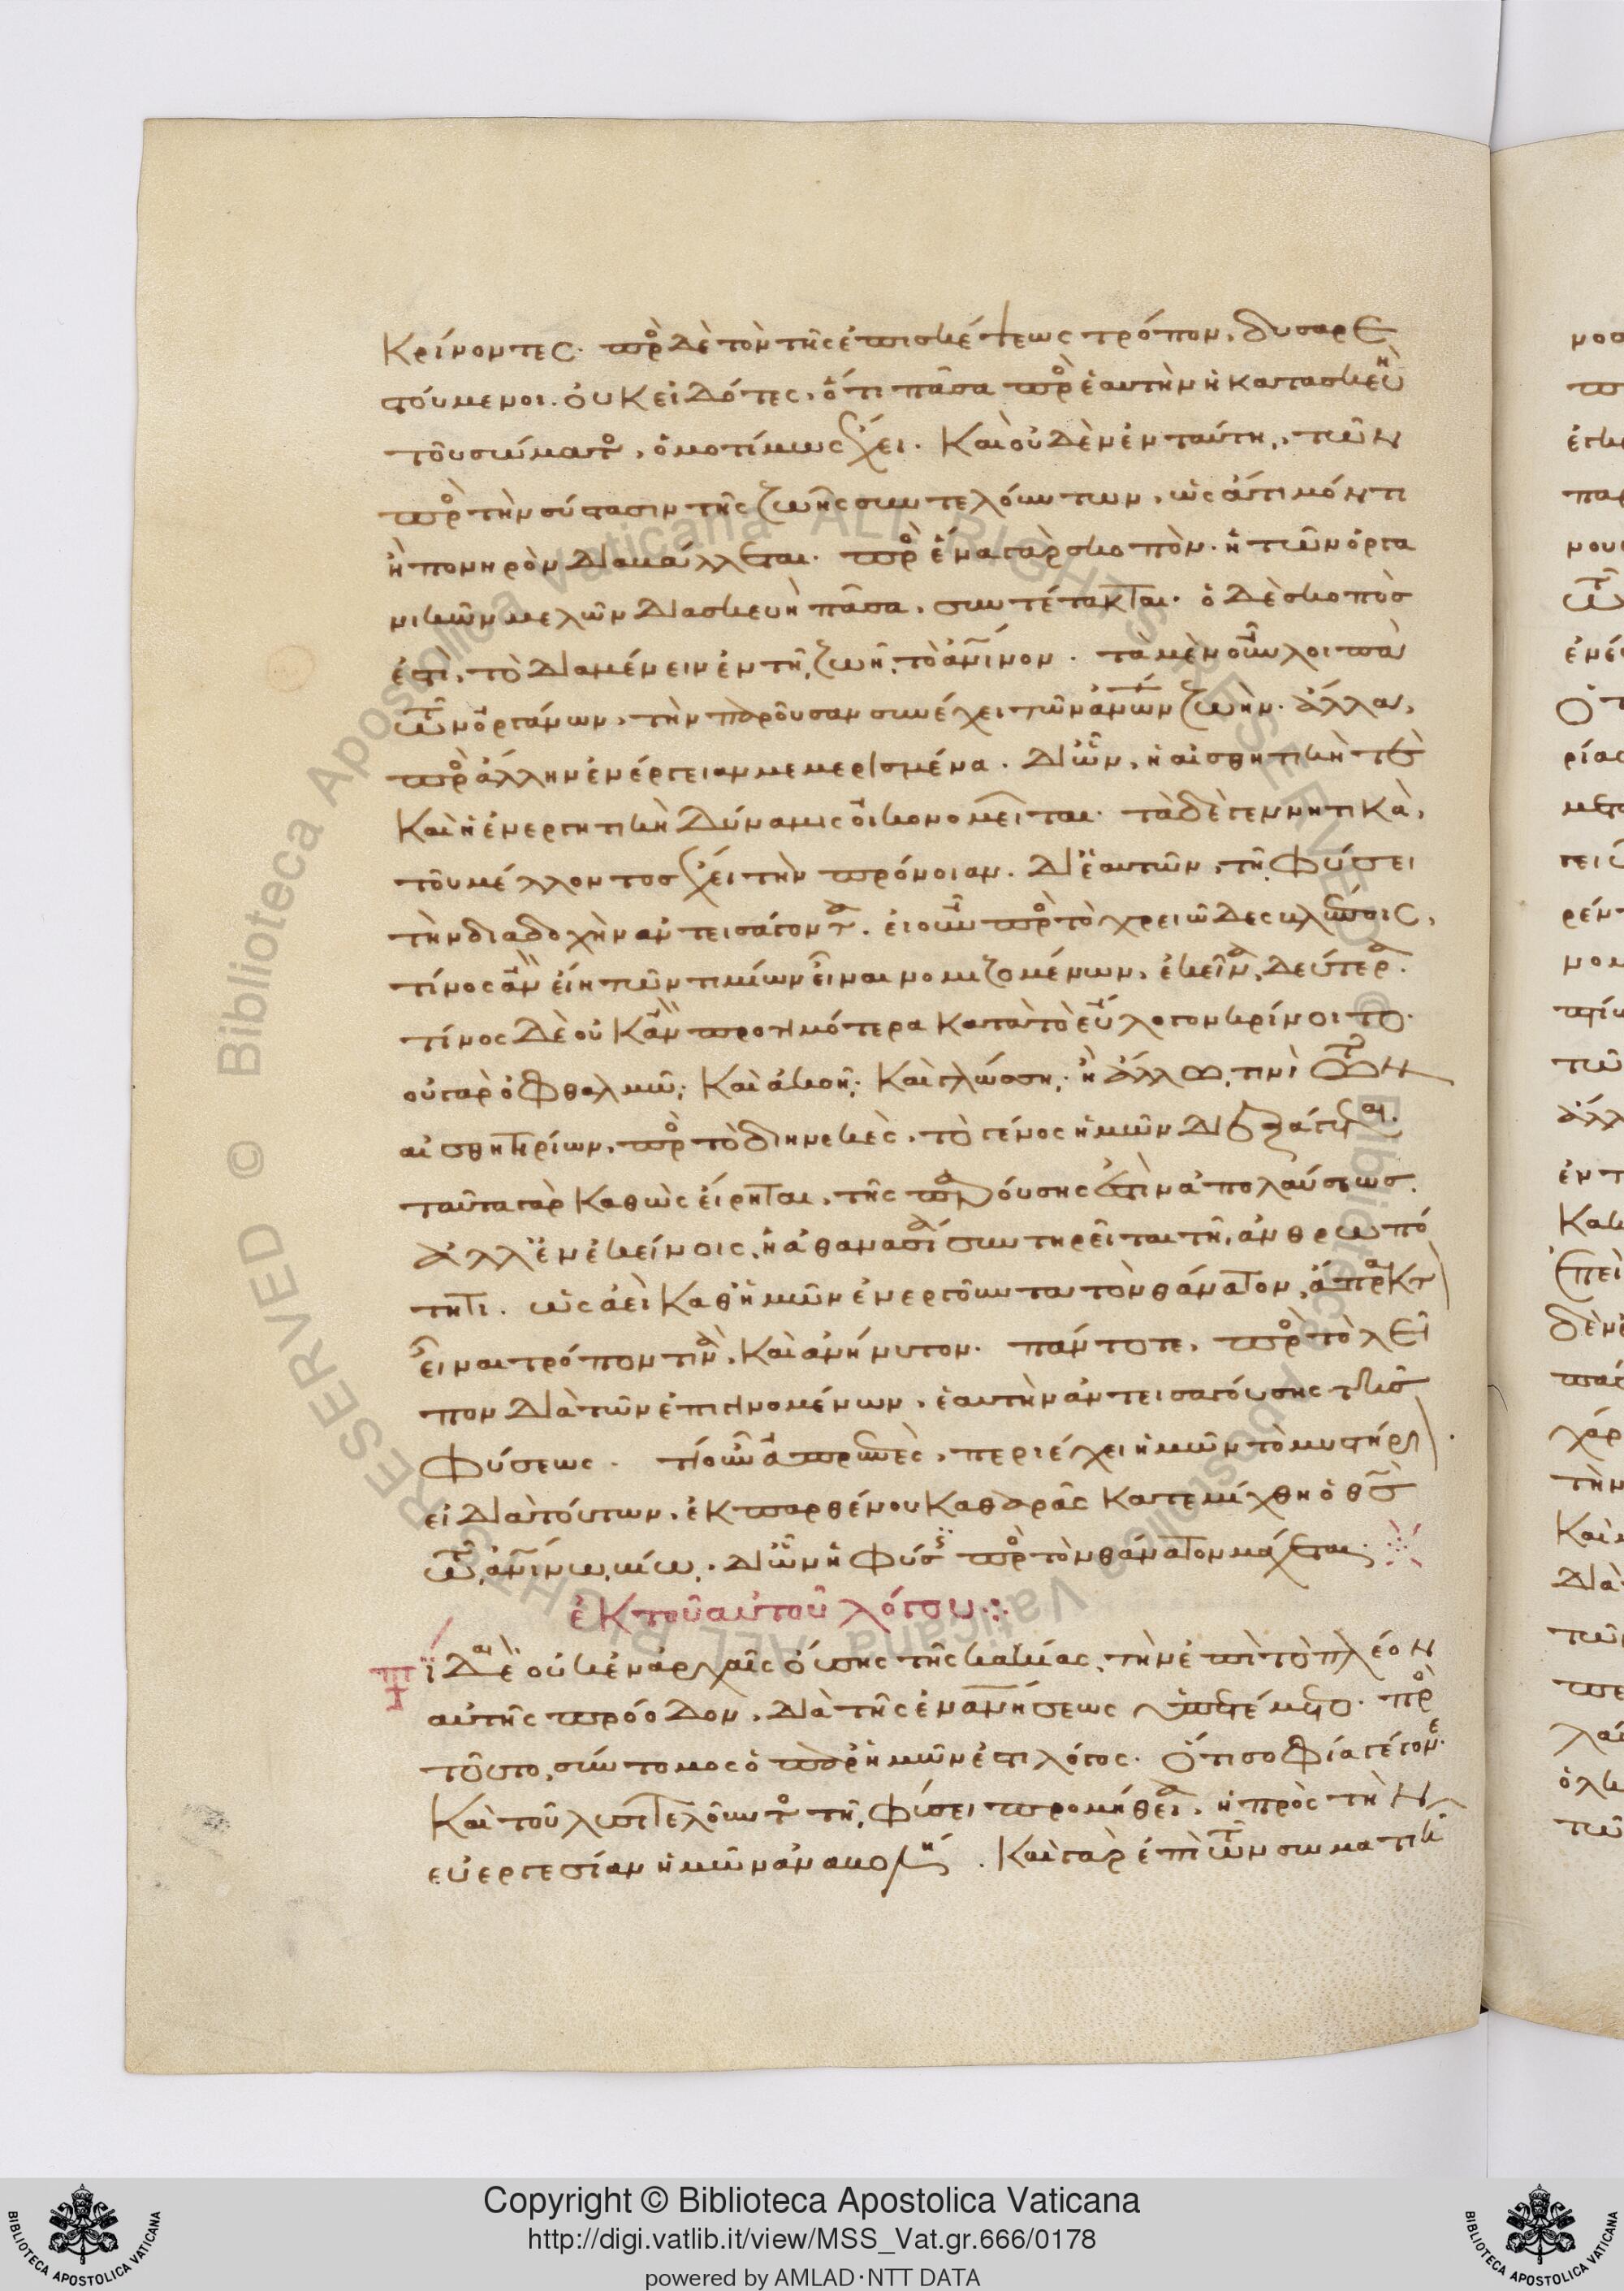 κρίνοντες· πρὸς δὲ τὸν τῆς ἐπισκέψεως τρόπον, δυσαρε
στούμενοι. οὐκ εἰδότες, ὅτι πᾶσα πρὸς ἑαυτὴν ἡ κατασκευὴ
τοῦ σώματος, ὁμοτίμως ἔχει. καὶ οὐδὲν ἐν ταύτῃ, τῶν
πρὸς τὴν σύστασιν τῆς ζωῆς συντελούντων, ὡς ἄτιμόν τι
ἢ πονηρὸν διαβάλλεται. πρὸς ἕνα γὰρ σκοπὸν, ἡ τῶν ὀργα
νικῶν μελῶν διασκευὴ πᾶσα, συντέτακται. ὁ δὲ σκοπὸς
ἐστὶ, τὸ διαμένειν ἐν τῇ ζωῇ τὸ ἀνινον. τὰ μὲν οὖν λοιπὰ
τῶν ὀργάνων, τὴν παροῦσαν συνέχει τῶν ἀνων ζωὴν. ἄλλα,
πρὸς ἄλλην ἐνέργειαν μεμερισμένα. δι' ὧν, ἡ αἰσθητική τε
καὶ ἡ ἐνεργητικὴ δύναμις οἰκονομεῖται. τὰ δὲ γεννητικὰ,
τοῦ μέλλοντος ἔχει τὴν πρόνοιαν. δι' ἑαυτῶν, τῇ φύσει
τὴν διαδοχὴν ἀντεισάγοντα. εἰ οὖν πρὸς τὸ χρειῶδες βλέποις,
τίνος ἂν εἴη τῶν τιμίων εἶναι νομιζομένων, ἐκεῖνα δεύτερα.
τίνος δὲ οὐκ ἂν προτιμότερα κατὰ τὸ εὔλογον κρίνοιτο.
οὐ γὰρ ὀφθαλμῷ, καὶ ἀκοῇ, καὶ γλώσσῃ, ἢ ἄλλῳ τινὶ τῶν
αἰσθητηρίων, πρὸς τὸ διηνεκὲς, τὸ γένος ἡμῶν διεξάγεται.
ταῦτα γὰρ καθὼς εἴρηται, τῆς παρούσης ἐστὶν ἀπολαύσεως.
ἀλλ' ἐν ἐκείνοις, ἡ ἀθανασία συντηρεῖται τῇ ἀνθρωπό
τητι. ὡς ἀεὶ καθ' ἡμῶν ἐνεργοῦντα τὸν θάνατον, ἄπρακτον
εἶναι τρόπον τινὰ, καὶ ἀνήνυτον. πάντοτε, πρὸς τὸ λεῖ
πον διὰ τῶν ἐπιγινομένων, ἑαυτὴν ἀντεισαγούσης τῆς
φύσεως. τί οὖν ἀπρεπὲς, περιέχει ἡμῶν τὸ μυστήριον.
εἰ διὰ τούτων, ἐκ παρθένου καθαρᾶς κατεμίχθη ὁ θσ
τῷ ἀνινω βίῳ. δι' ὧν ἡ φύσις πρὸς τὸν θάνατον μάχεται.
ἐκ τοῦ αὐτοῦ λόγου:
εἶδε οὐκ ἐν ἀρχαῖς οὔσης τῆς κακίας, τὴν ἐπὶ τὸ πλέον
αὐτῆς πρόοδον, διὰ τῆς ἐνανήσεως
τοῦτο, σύντομος ὁ παρ' ἡμῶν ἐστι λόγος. ὅτι σοφία γέγονε
καὶ τοῦ λυσιτελοῦντος τῇ φύσει προμήθεια, ἡ πρὸς τὴν
εὐεργεσίαν ἡμῶν ἀναβολή. καὶ γὰρ ἐπὶ τῶν σωματικῶν
Copyright © Biblioteca Apostolica Vaticana
http://digi.vatlib.it/view/MSS_Vat.gr.666/0178
powered by AMLAD·NTT DATA